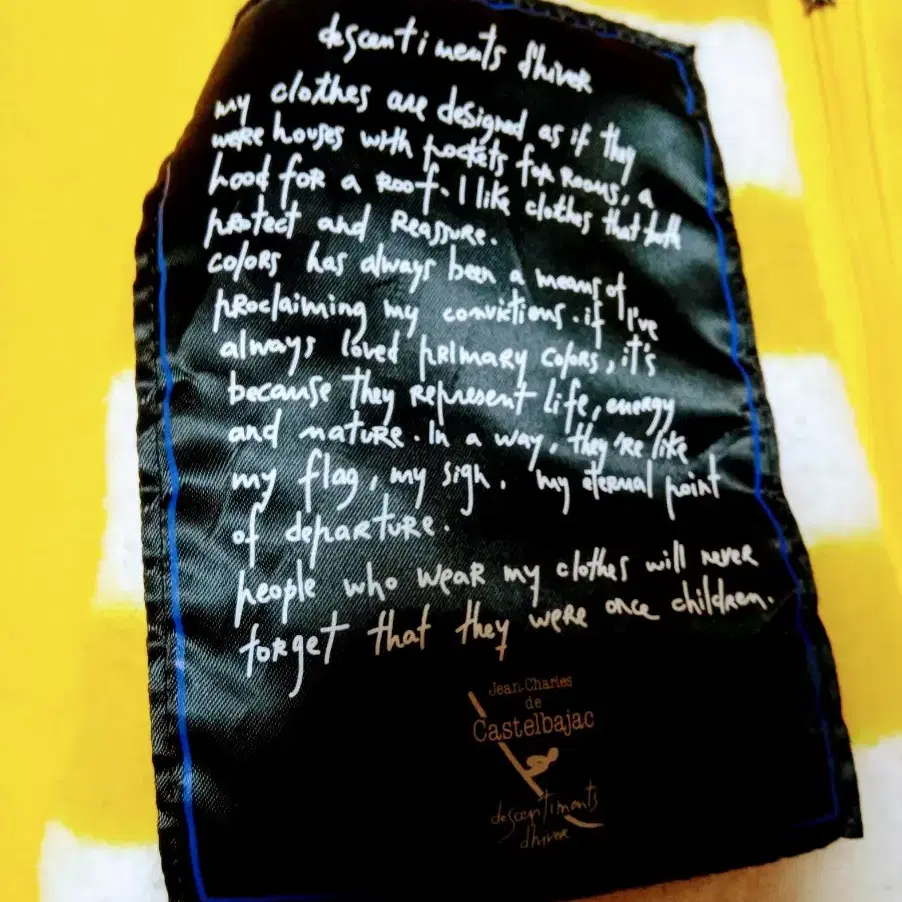 descentiments d'hiver
my clothes are designed as if they
were houses with pockets for rooms, a
hood for a roof. I like clothes that both
protect and reassure.
colors has always been a means of
proclaiming my convictions. if I've
always loved primary colors, it's
because they represent life, energy
and nature. In a way, they're like
my flag, my sign. my eternal point
of departure.
people who wear my clothes will never
forget that they were once children.
Jean-Charles
de
Castelbajac
descentiments
d'hiver